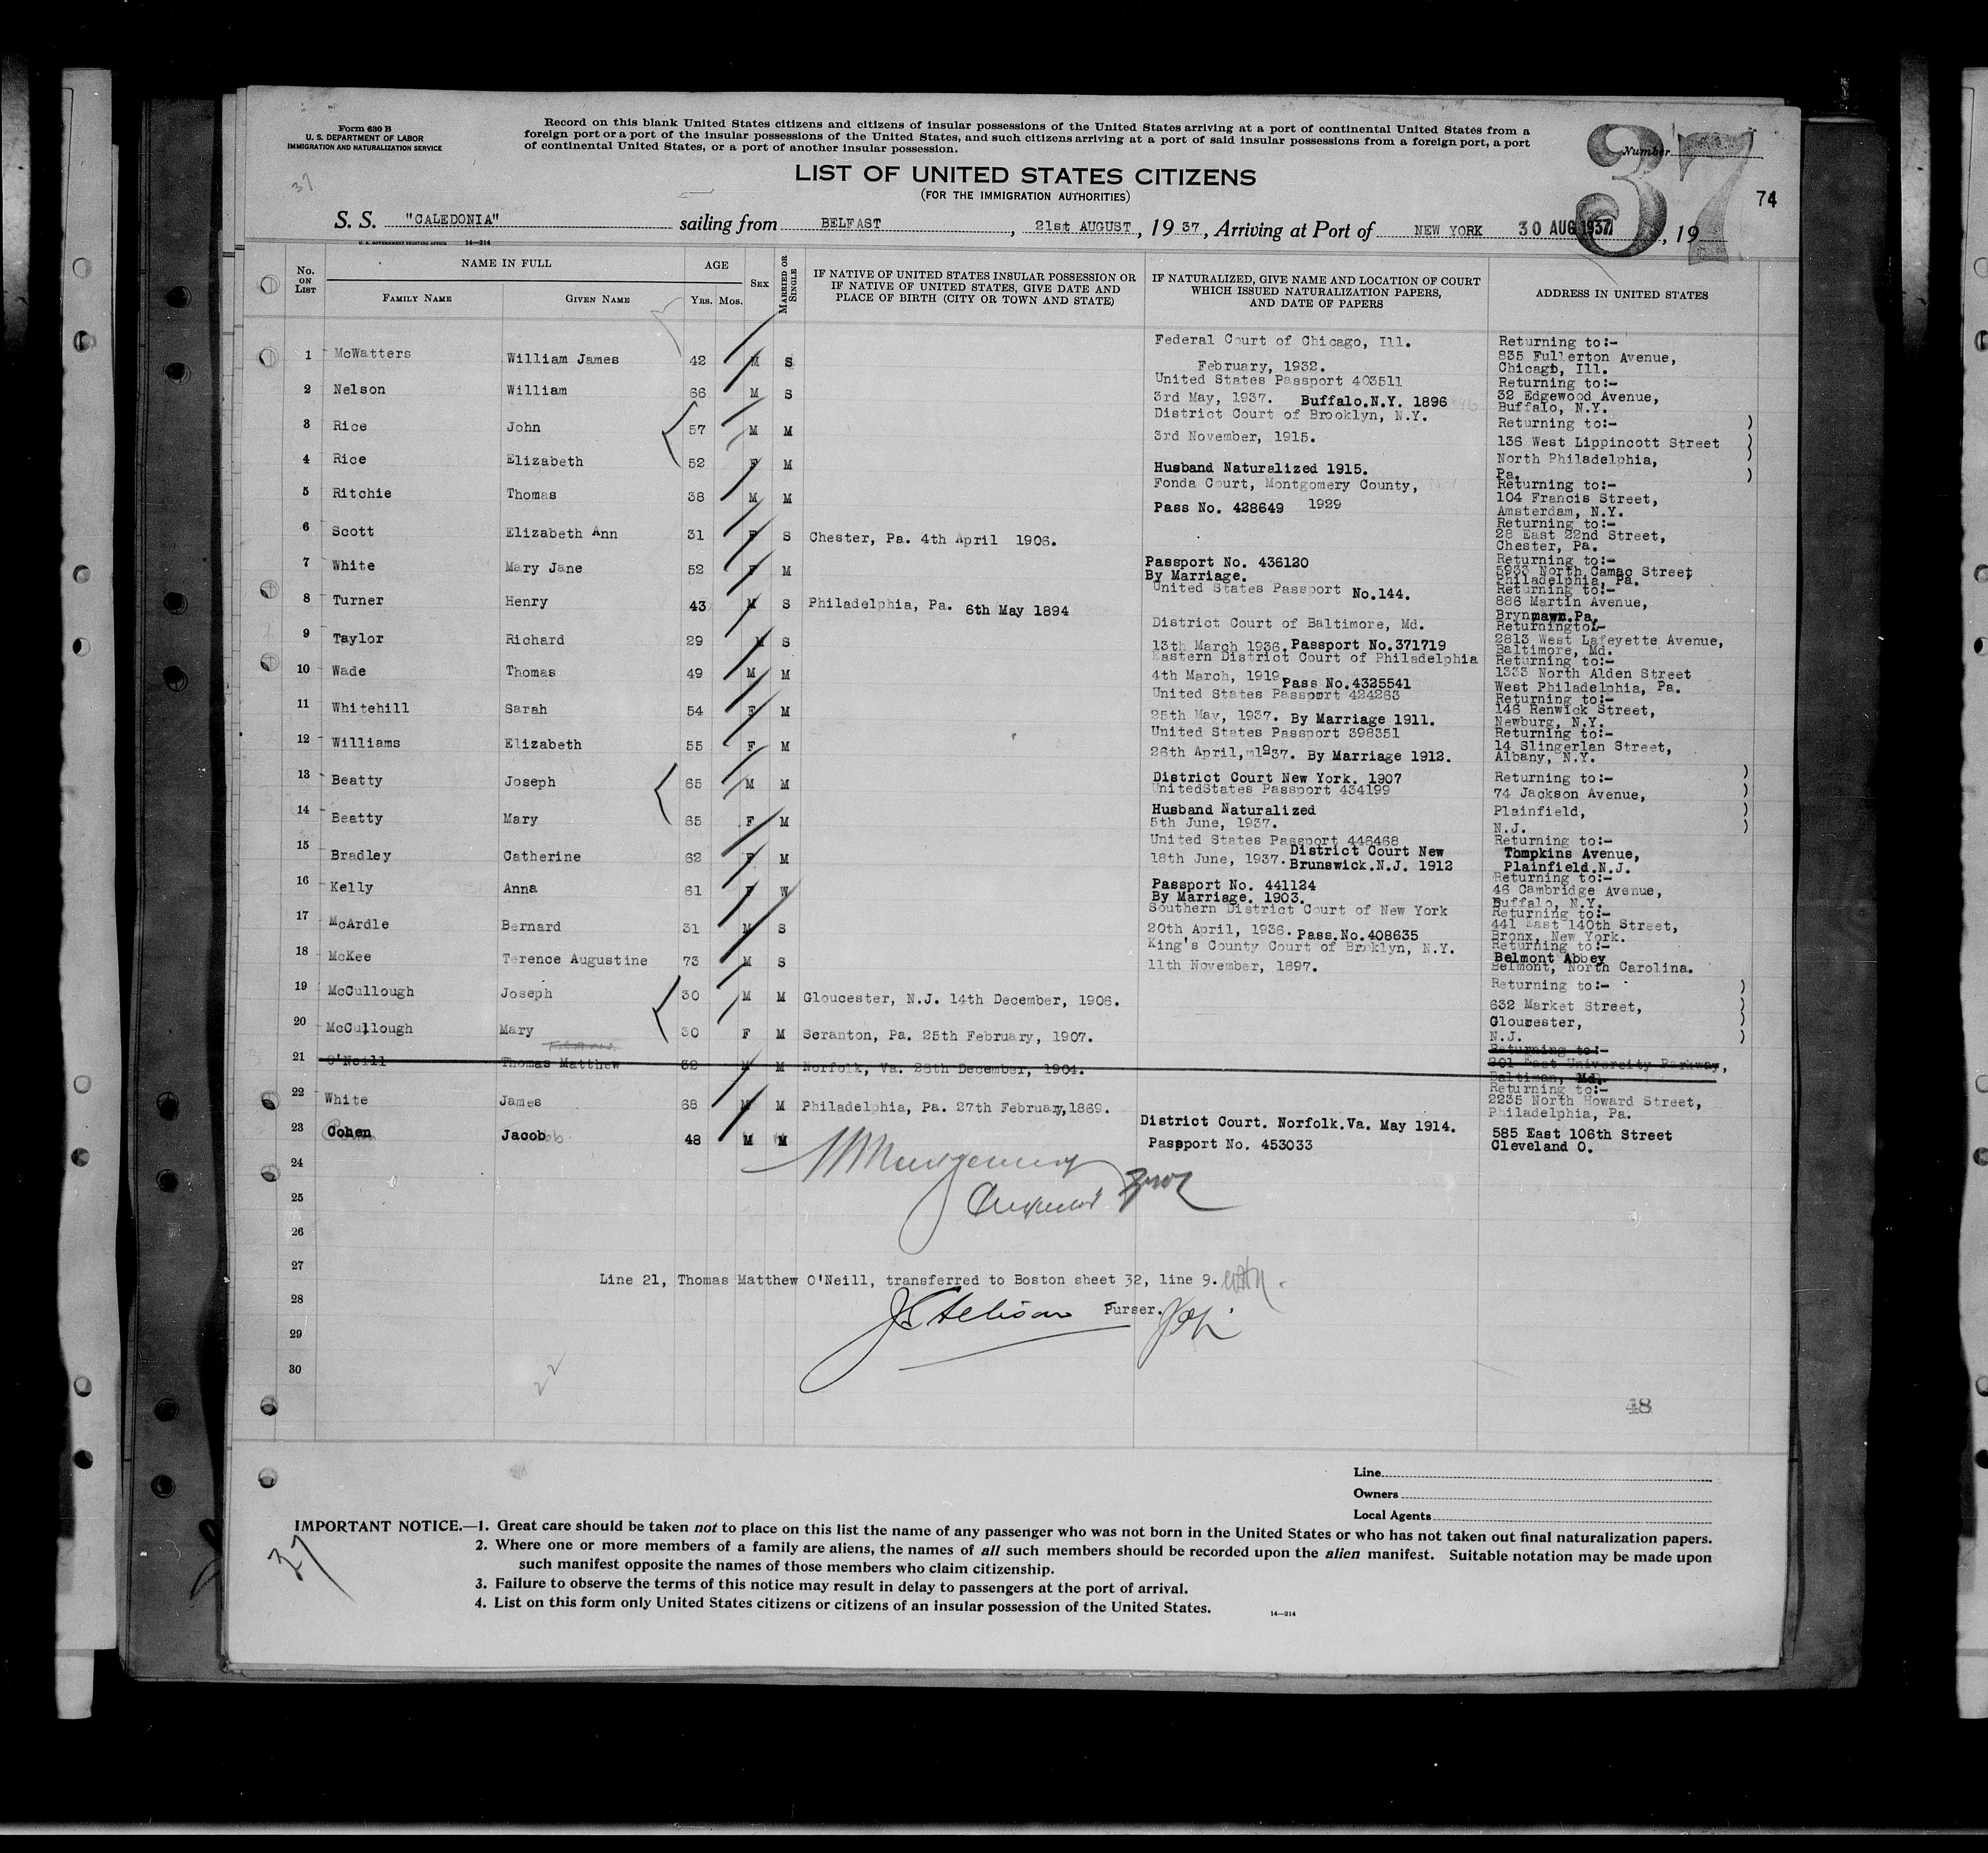 Form 630 B
U. S. DEPARTMENT OF LABOR
IMMIGRATION AND NATURALIZATION SERVICE
Record on this blank United States citizens and citizens of insular possessions of the United States arriving at a port of continental United States from a
foreign port or a port of the insular possessions of the United States, and such citizens arriving at a port of said insular possessions from a foreign port, a port
of continental United States, or a port of another insular possession.
Number
37
74
37
LIST OF UNITED STATES CITIZENS
(FOR THE IMMIGRATION AUTHORITIES)
S. S. "CALEDONIA" sailing from BELFAST, 21st AUGUST, 1937, Arriving at Port of NEW YORK 30 AUG 1937, 19
U. S. GOVERNMENT PRINTING OFFICE 14—214
No. ON LIST
NAME IN FULL
FAMILY NAME GIVEN NAME
AGE
YRS. MOS.
SEX
MARRIED OR SINGLE
IF NATIVE OF UNITED STATES INSULAR POSSESSION OR
IF NATIVE OF UNITED STATES, GIVE DATE AND
PLACE OF BIRTH (CITY OR TOWN AND STATE)
IF NATURALIZED, GIVE NAME AND LOCATION OF COURT
WHICH ISSUED NATURALIZATION PAPERS,
AND DATE OF PAPERS
ADDRESS IN UNITED STATES
1 McWatters William James 42 M S Federal Court of Chicago, Ill.
February, 1932.
Returning to:-
835 Fullerton Avenue,
Chicago, Ill.
2 Nelson William 66 M S United States Passport 403511
3rd May, 1937. Buffalo.N.Y. 1896
Returning to:-
32 Edgewood Avenue,
Buffalo, N.Y.
3 Rice John 57 M M District Court of Brooklyn, N.Y.
3rd November, 1915.
Returning to:-
136 West Lippincott Street
4 Rice Elizabeth 52 F M Husband Naturalized 1915.
North Philadelphia,
Pa.
5 Ritchie Thomas 38 M M Fonda Court, Montgomery County,
Pass No. 428649 1929
Returning to:-
104 Francis Street,
Amsterdam, N.Y.
6 Scott Elizabeth Ann 31 F S Chester, Pa. 4th April 1906.
Returning to:-
28 East 22nd Street,
Chester, Pa.
7 White Mary Jane 52 F M Passport No. 436120
By Marriage.
Returning to:-
5933 North Camac Street
Philadelphia, Pa.
8 Turner Henry 43 M S Philadelphia, Pa. 6th May 1894
United States Passport No.144.
Returning to:-
886 Martin Avenue,
Brynmawn.Pa.
9 Taylor Richard 29 M S District Court of Baltimore, Md.
13th March 1936. Passport No.371719
Returningto:-
2813 West Lafeyette Avenue,
Baltimore, Md.
10 Wade Thomas 49 M M Eastern District Court of Philadelphia
4th March, 1919 Pass No.4325541
Returning to:-
1333 North Alden Street
West Philadelphia, Pa.
11 Whitehill Sarah 54 F M United States Passport 424263
25th May, 1937. By Marriage 1911.
Returning to:-
146 Renwick Street,
Newburg, N.Y.
12 Williams Elizabeth 55 F M United States Passport 398351
26th April, 1937. By Marriage 1912.
Returning to:-
14 Slingerlan Street,
Albany, N.Y.
13 Beatty Joseph 65 M M District Court New York. 1907
UnitedStates Passport 434199
Returning to:-
74 Jackson Avenue,
14 Beatty Mary 65 F M Husband Naturalized
5th June, 1937.
Plainfield,
N.J.
15 Bradley Catherine 62 F M United States Passport 446468
18th June, 1937. District Court New
Brunswick.N.J. 1912
Returning to:-
Tompkins Avenue,
Plainfield.N.J.
16 Kelly Anna 61 F W Passport No. 441124
By Marriage. 1903.
Returning to:-
46 Cambridge Avenue,
Buffalo, N.Y.
17 McArdle Bernard 31 M S Southern District Court of New York
20th April, 1936. Pass.No.408635
Returning to:-
441 East 140th Street,
Bronx, New York.
18 McKee Terence Augustine 73 M S King's County Court of Broklyn, N.Y.
11th November, 1897.
Returning to:-
Belmont Abbey
Belmont, North Carolina.
19 McCullough Joseph 30 M M Gloucester, N.J. 14th December, 1906.
Returning to:-
632 Market Street,
20 McCullough Mary 30 F M Scranton, Pa. 25th February, 1907.
Gloucester,
N.J.
21 O'Neill Thomas Matthew 32 M M Norfolk, Va. 28th December, 1904.
Returning to:-
801 East University Parkway,
Baltimon, Md.
22 White James 68 M M Philadelphia, Pa. 27th February,1869.
Returning to:-
2235 North Howard Street,
Philadelphia, Pa.
23 Cohen Jacob 48 M M District Court. Norfolk.Va. May 1914.
Passport No. 453033
585 East 106th Street
Cleveland O.
24
25
26
27
Line 21, Thomas Matthew O'Neill, transferred to Boston sheet 32, line 9.
28
Purser.
29
30
22
48
Line
Owners
Local Agents
IMPORTANT NOTICE.—1. Great care should be taken not to place on this list the name of any passenger who was not born in the United States or who has not taken out final naturalization papers.
2. Where one or more members of a family are aliens, the names of all such members should be recorded upon the alien manifest. Suitable notation may be made upon
such manifest opposite the names of those members who claim citizenship.
3. Failure to observe the terms of this notice may result in delay to passengers at the port of arrival.
4. List on this form only United States citizens or citizens of an insular possession of the United States.
14—214
37